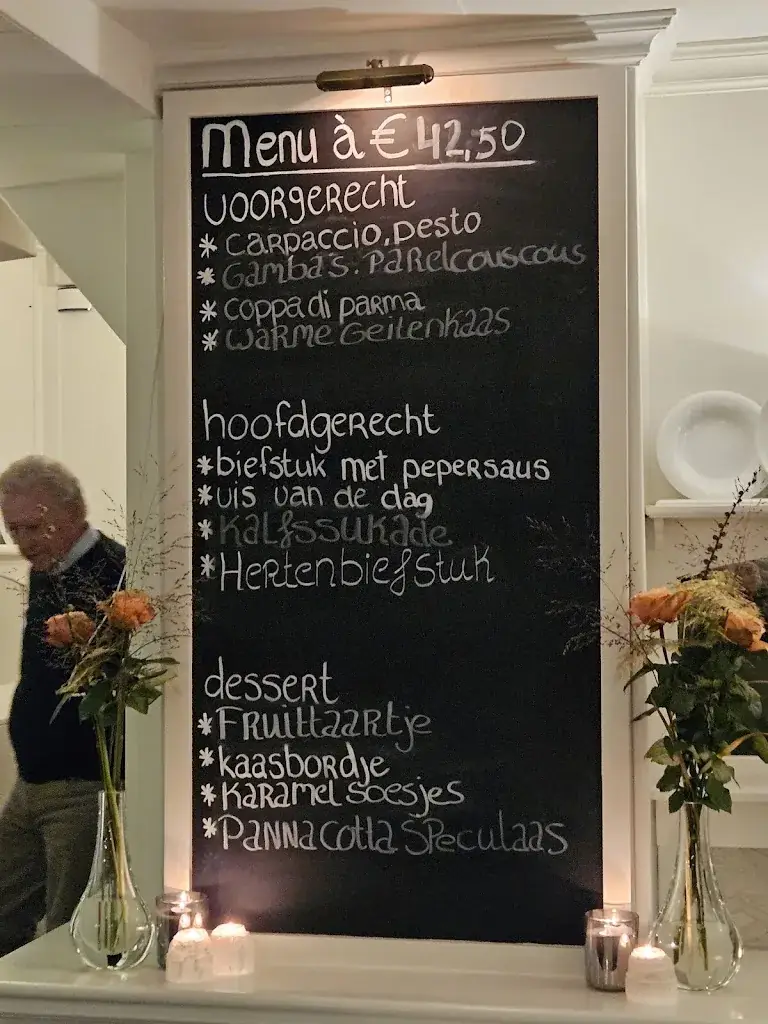 Menu à € 42,50
voorgerecht
* carpaccio, pesto
* Gamba's. Parelcouscous
* coppa di parma
* warme Geitenkaas
hoofdgerecht
* biefstuk met pepersaus
* vis van de dag
* Kalfssukade
* Hertenbiefstuk
dessert
* Fruittaartje
* kaasbordje
* Karamel soesjes
* Panna cotta Speculaas